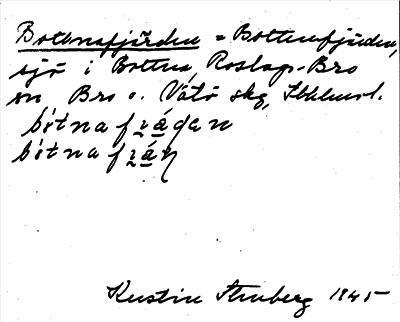 Botenafjärden = Bottenfjärden,
sjö i Bottna, Roslags-Bro
sn Bro o. Vätö skg, Sthlms l.
bòtnafɹá̱ɖen
bòtnafɹá̱ɳ
Kerstin Stenberg 1945